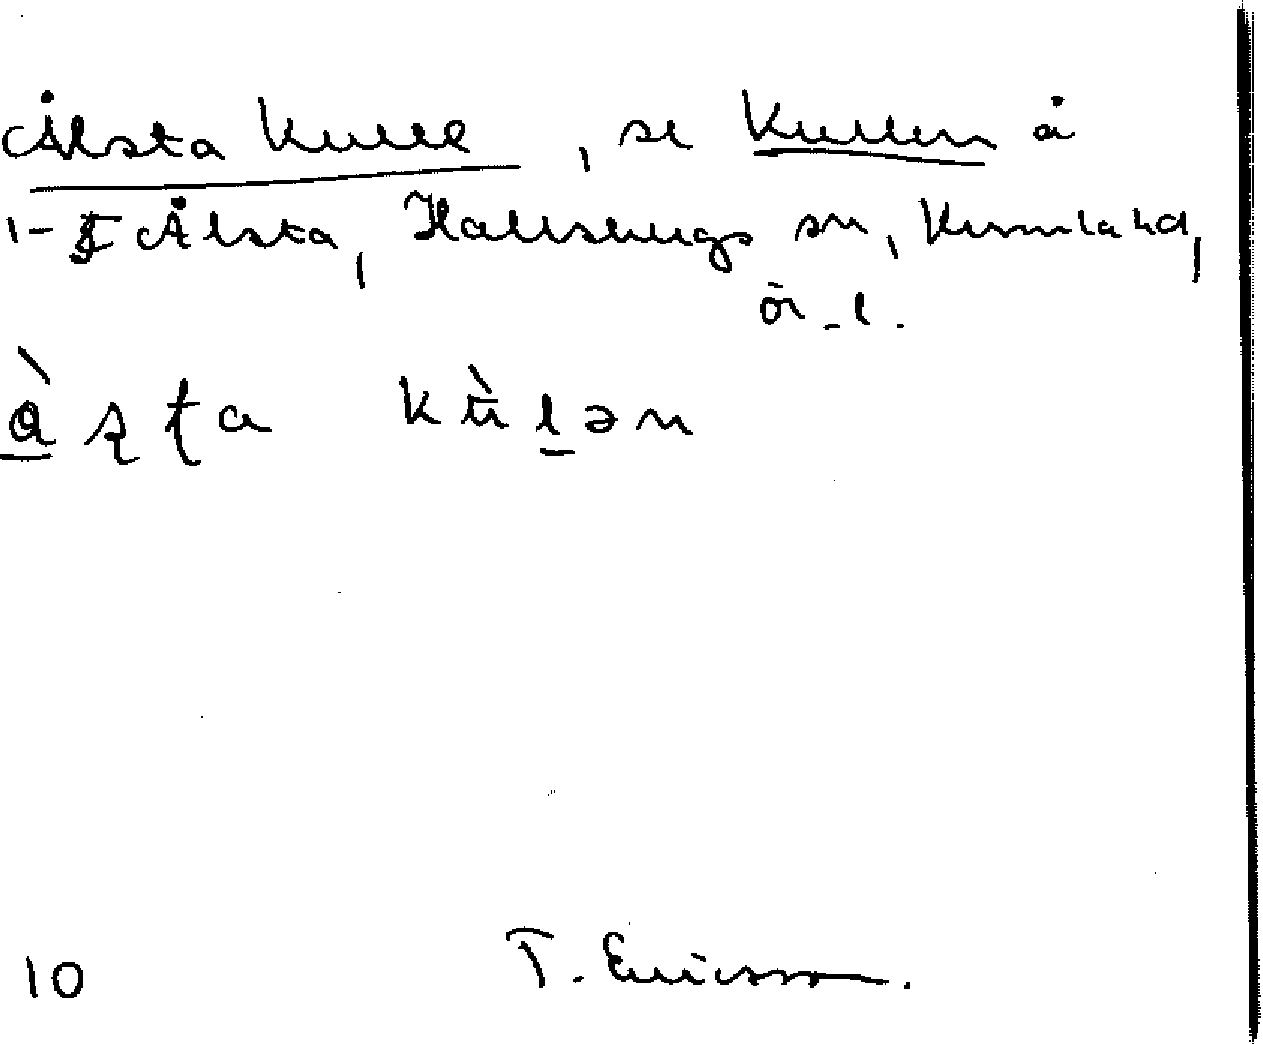 Ålsta kulle, se Kullen å
1-5 Ålsta, Hallsbergs sn, Kumla hd,
Ör. l.
ꞎʈa kùl̠ən
10 T. Ericsson.